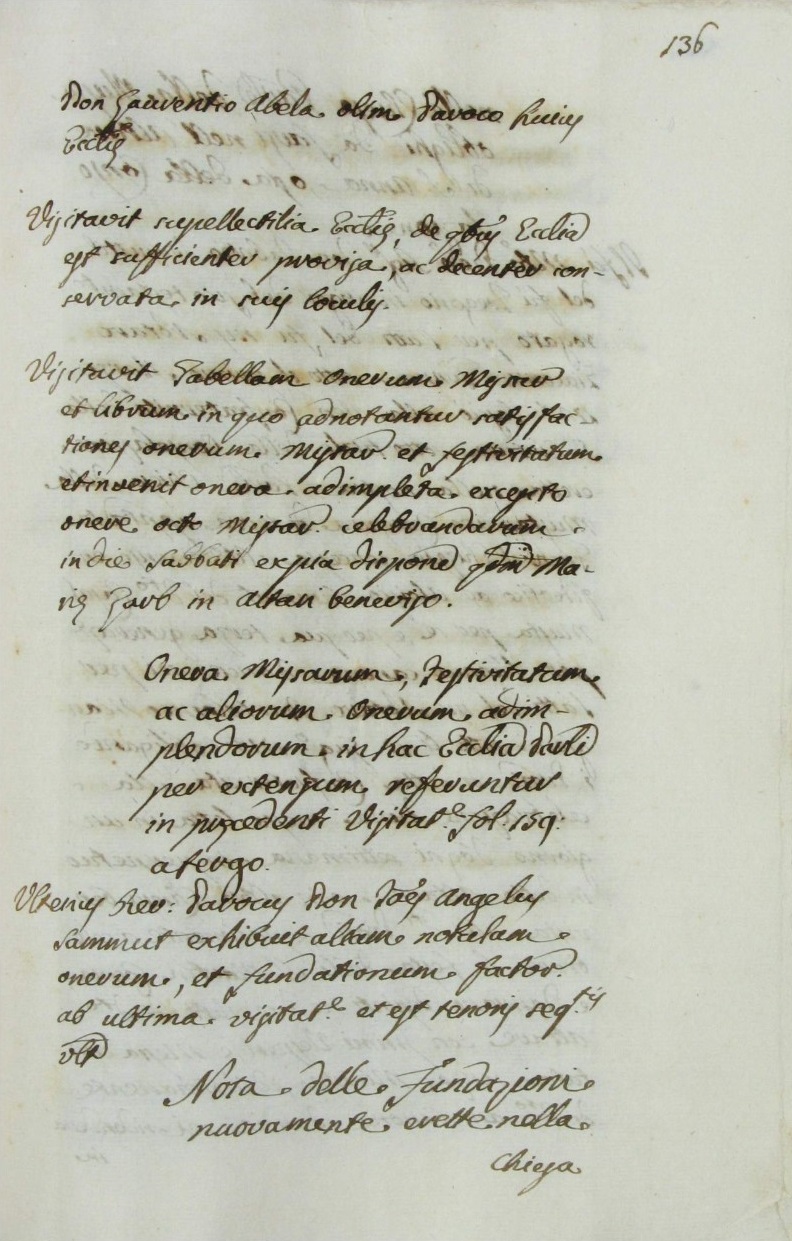 136
Don Laurentio Abela olim Paroco huius
Eccliæ
Visitavit supellectilia Eccliæ, de qbus Ecclia
est sufficienter provisa, ac decenter con-
servata in suis loculis.
Visitavit Tabellam onerum Missar
et librum in quo adnotantur satisfac
tiones onerum Missar. et festivitatum
et invenit onera adimpleta excepto
onere octo Missar. celebrandarum
in die Sabbati ex pia dispone qdm Ma-
riæ Zarb in altari
Onera Missarum, Festivitatum
ac aliorum onerum adim-
plendorum in hac Ecclia Parli
per extensum referuntur
in præcedenti Visitat.e fol: 159:
a tergo.
Ulterius Rev: Parocus Don Joães Angelus
Sammut exhibuit aliam notulam
onerum, et fundationum factor.
ab ultima visitat.e et est tenoris seq.tis
vltd
Nota delle Fundazioni
nuovamente erette nella
Chiesa